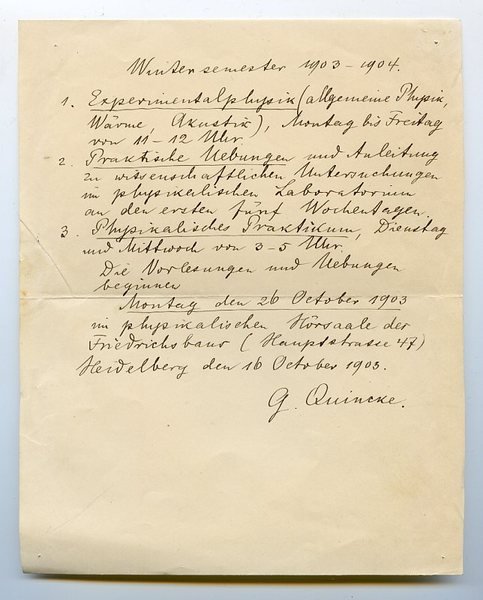 Wintersemester 1903–1904.
1. Experimentalphysik (allgemeine Physik,
Wärme, Akustik), Montag bis Freitag
von 11–12 Uhr.
2. Praktische Uebungen und Anleitung
zu wissenschaftlichen Untersuchungen
im physikalischen Laboratorium
an den ersten fünf Wochentagen.
3. Physikalisches Praktikum, Dienstag
und Mittwoch von 3–5 Uhr.
Die Vorlesungen und Uebungen
beginnen
Montag den 26 October 1903
im physikalischen Hörsaale der
Friedrichsbaus (Hauptstrasse 47)
Heidelberg den 16 October 1903.
G. Quincke.